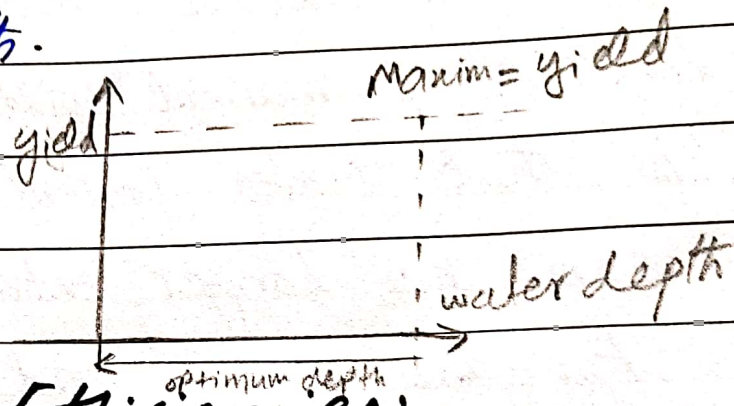 Maxim= yield
yield
water depth
optimum depth